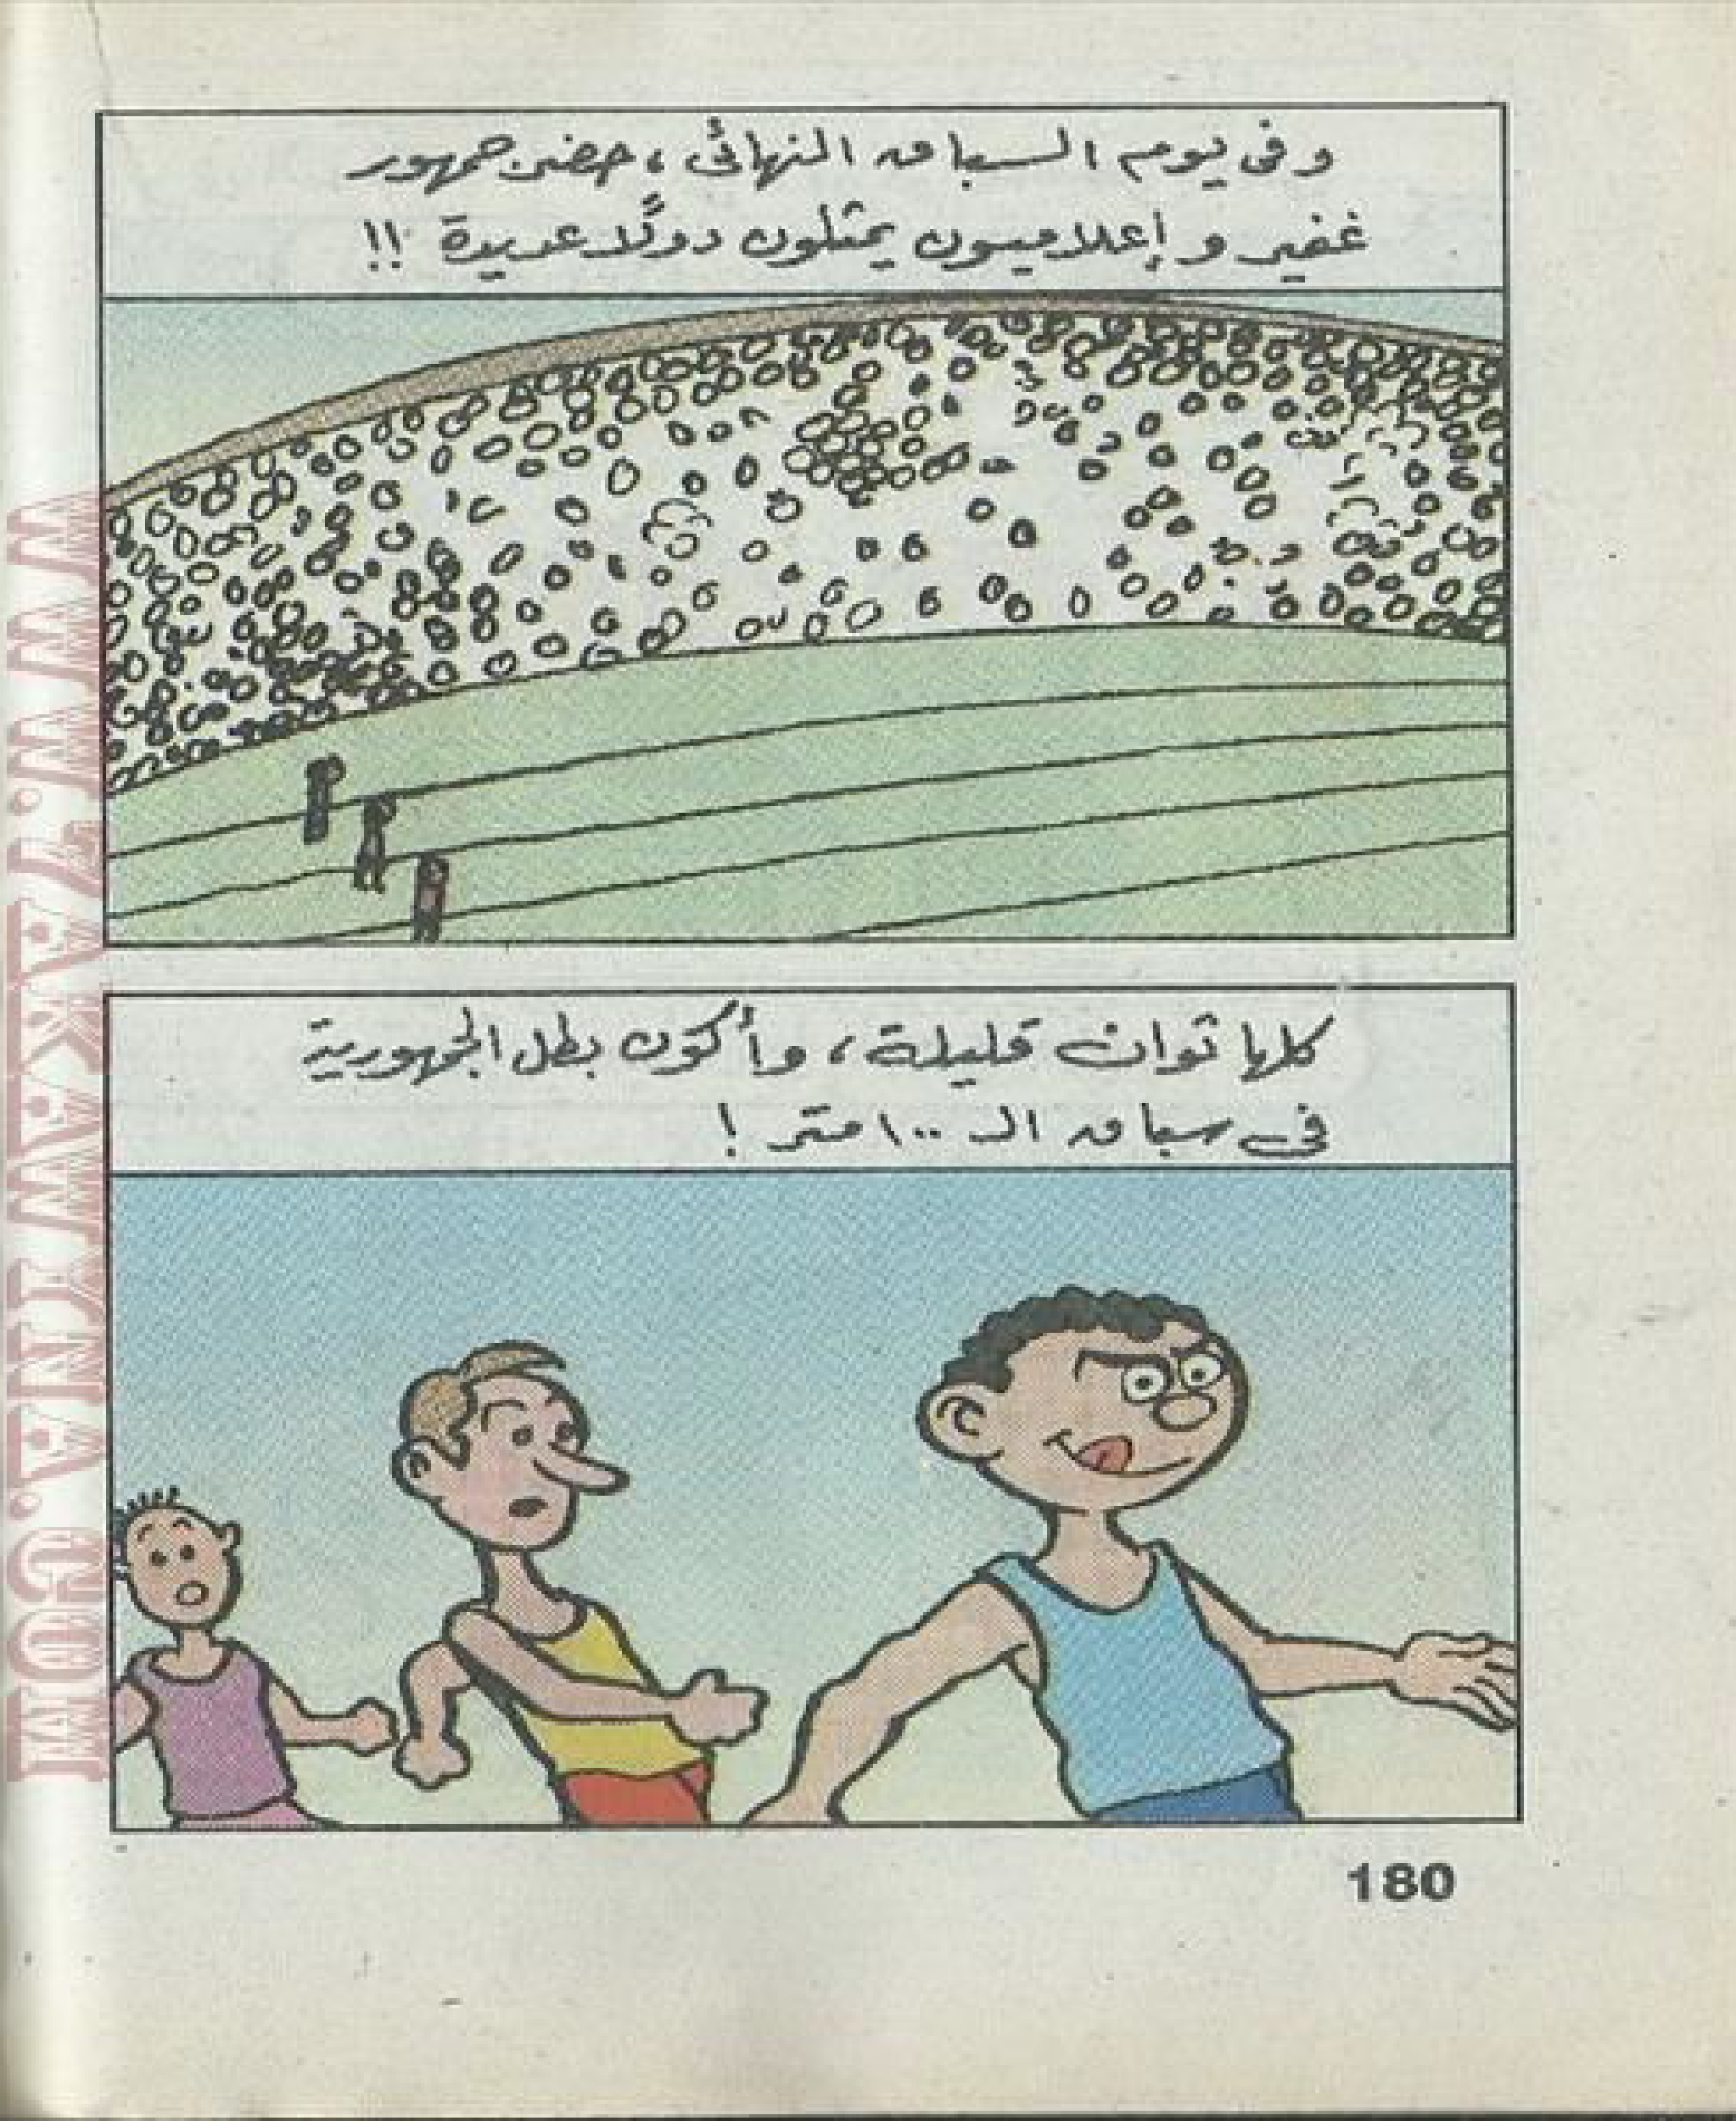 وفى يوم السباق النهائى، حضر جمهور
غفير وإعلاميون يمثلون دولًا عديدة !!
كلها ثوان قليلة، وأكون بطل الجمهورية
فى سباق الـ ١٠٠ متر !
180
WWW.TAKAWTNA.COM